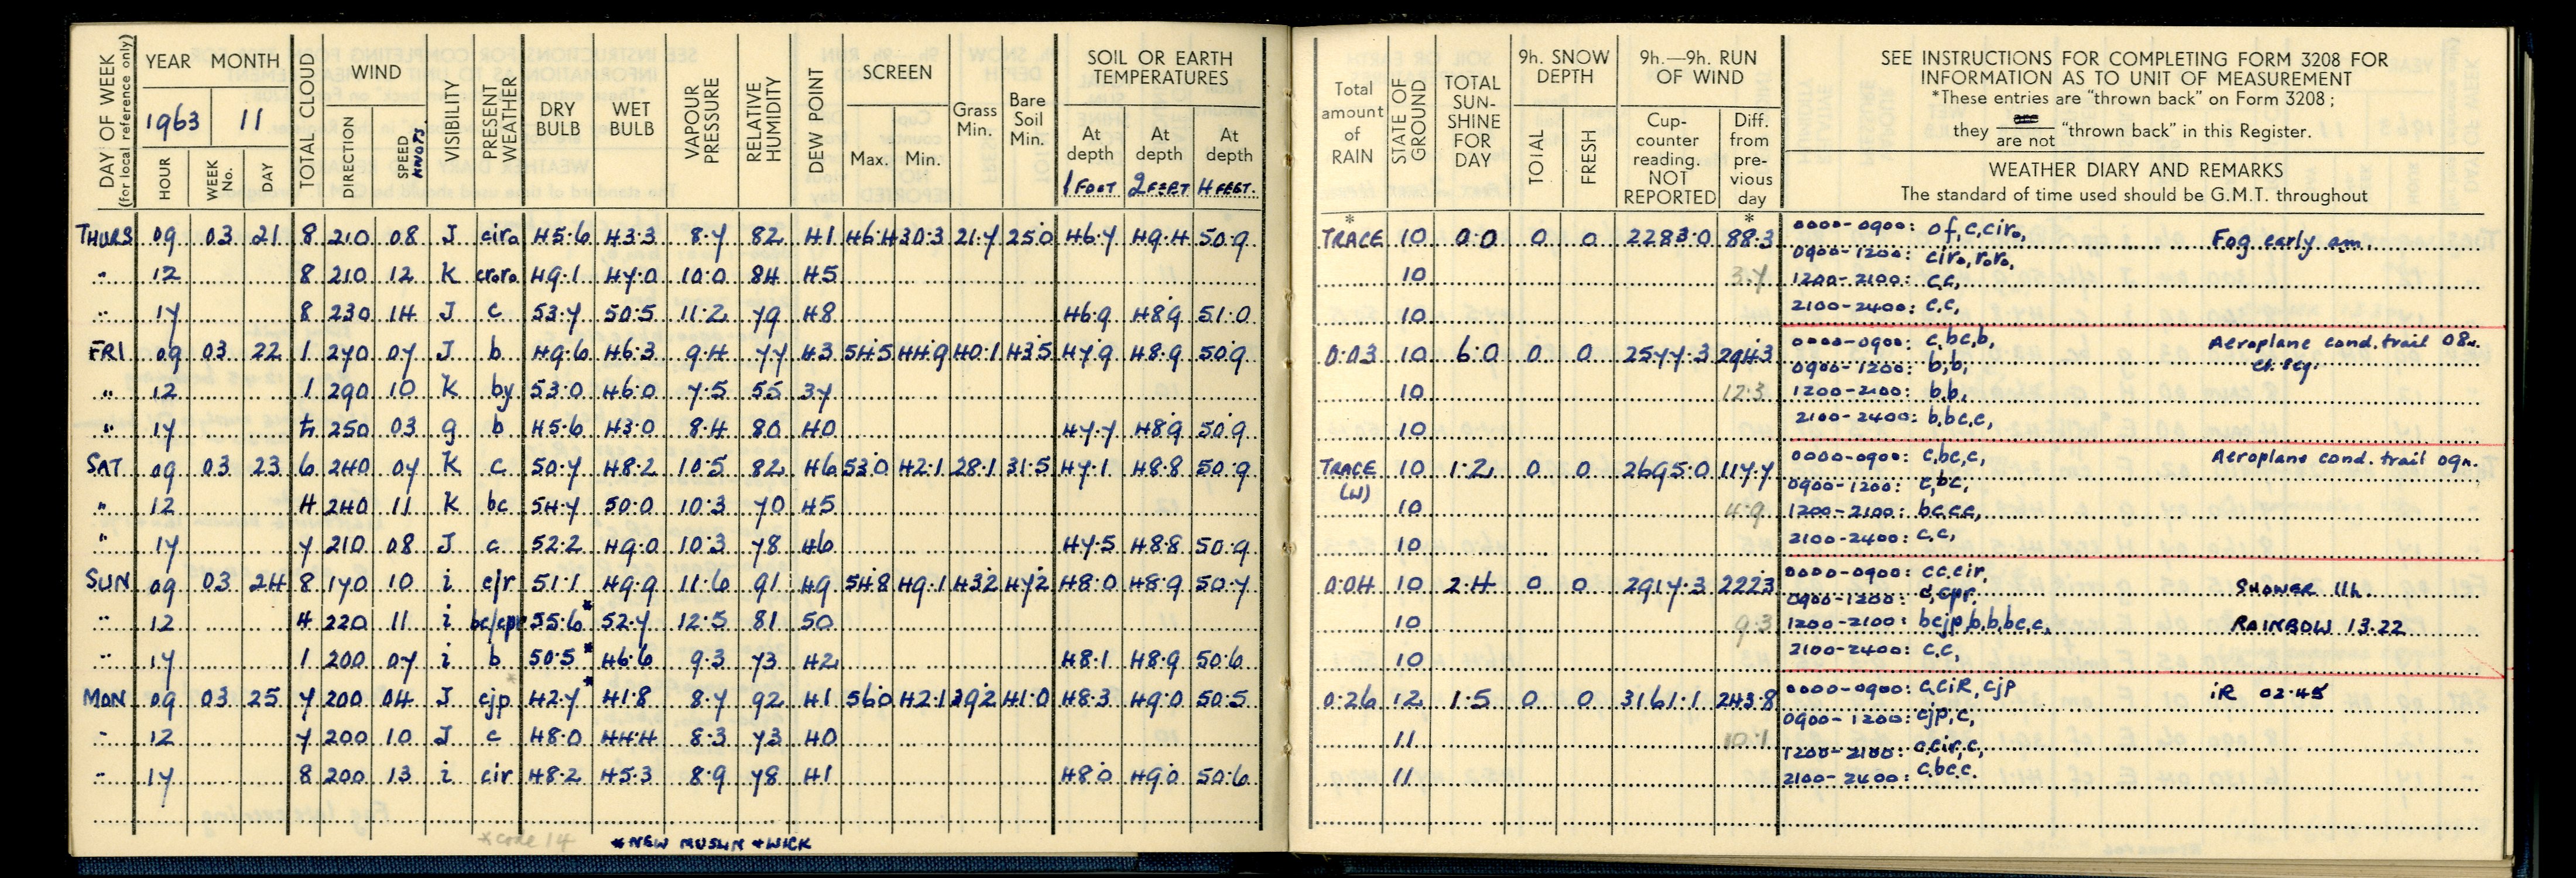 DAY OF WEEK (for local reference only) YEAR MONTH TOTAL CLOUD WIND VISIBILITY PRESENT WEATHER DRY BULB WET BULB VAPOUR PRESSURE RELATIVE HUMIDITY DEW POINT SCREEN Grass Min. Bare Soil Min. SOIL OR EARTH TEMPERATURES
1963 11
HOUR WEEK No. DAY DIRECTION SPEED KNOTS. Max. Min. At depth 1 FOOT At depth 2 FEET At depth 4 FEET.
THURS 09 03 21 8 210 08 J ciro 45.6 43.3 8.7 82 41 46.4 30.3 21.7 25.0 46.7 49.4 50.9
" 12 8 210 12 K croro 49.1 47.0 10.0 84 45
" 17 8 230 14 J c 53.7 50.5 11.2 79 48 46.9 48.9 51.0
FRI 09 03 22 1 270 07 J b 49.6 46.3 9.4 77 43 54.5 44.9 40.1 43.5 47.9 48.9 50.9
" 12 1 290 10 K by 53.0 46.0 7.5 55 37
" 17 250 03 g b 45.6 43.0 8.4 80 40 47.7 48.9 50.9
SAT 09 03 23 6 240 07 K c 50.7 48.2 10.5 82 46 53.0 42.1 28.1 31.5 47.1 48.8 50.9
" 12 4 240 11 K bc 54.7 50.0 10.3 70 45
" 17 7 210 08 J c 52.2 49.0 10.3 78 46 47.5 48.8 50.9
SUN 09 03 24 8 170 10 i c/r 51.1 49.9 11.6 91 49 54.8 49.1 43.2 47.2 48.0 48.9 50.7
" 12 4 220 11 i bc/cpr 55.6* 52.7 12.5 81 50
" 17 1 200 07 i b 50.5* 46.6 9.3 73 42 48.1 48.9 50.6
MON 09 03 25 7 200 04 J cjp* 42.7* 41.8 8.7 92 41 56.0 42.1 39.2 41.0 48.3 49.0 50.5
" 12 7 200 10 J c 48.0 44.4 8.3 73 40
" 17 8 200 13 i cir 48.2 45.3 8.9 78 41 48.0 49.0 50.6
*code 14 *NEW MUSLIN + WICK
Total amount of RAIN STATE OF GROUND TOTAL SUN-SHINE FOR DAY 9h. SNOW DEPTH 9h.—9h. RUN OF WIND SEE INSTRUCTIONS FOR COMPLETING FORM 3208 FOR
INFORMATION AS TO UNIT OF MEASUREMENT
*These entries are "thrown back" on Form 3208;
they are / are not "thrown back" in this Register.
TOTAL FRESH Cup-counter reading. NOT REPORTED Diff. from pre-vious day
WEATHER DIARY AND REMARKS
The standard of time used should be G.M.T. throughout
* *
TRACE 10 0.0 0 0 2283.0 88.3 0000-0900: of,c,ciro, Fog early am.
0900-1200: ciro,roro,
10 3.7 1200-2100: c,c,
10 2100-2400: c,c,
0.03 10 6.0 0 0 2577.3 294.3 0000-0900: c,bc,b, Aeroplane cond. trail 08h.
0900-1200: b,b, et. seq.
10 12.3 1200-2100: b,b,
10 2100-2400: b,bc,c,
TRACE (W) 10 1.2 0 0 2695.0 117.7 0000-0900: c,bc,c, Aeroplane cond. trail 09h.
0900-1200: c,bc,
10 4.9 1200-2100: bc,c,c,
10 2100-2400: c,c,
0.04 10 2.4 0 0 2917.3 222.3 0000-0900: c,c,cir, SHOWER 11h.
0900-1200: c,cpr,
10 9.3 1200-2100: bcjp,b,b,bc,c, RAINBOW 13.22
10 2100-2400: c,c,
0.26 12 1.5 0 0 3161.1 243.8 0000-0900: c,ciR,cjp iR 02.45
0900-1200: cjp,c,
11 10.1 1200-2100: c,cir,c,
11 2100-2400: c,bc,c.